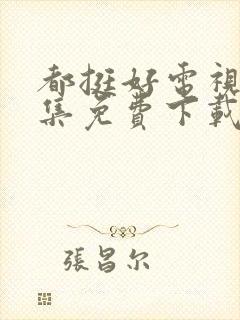 都挺好電視
集免費下載
張昌尔